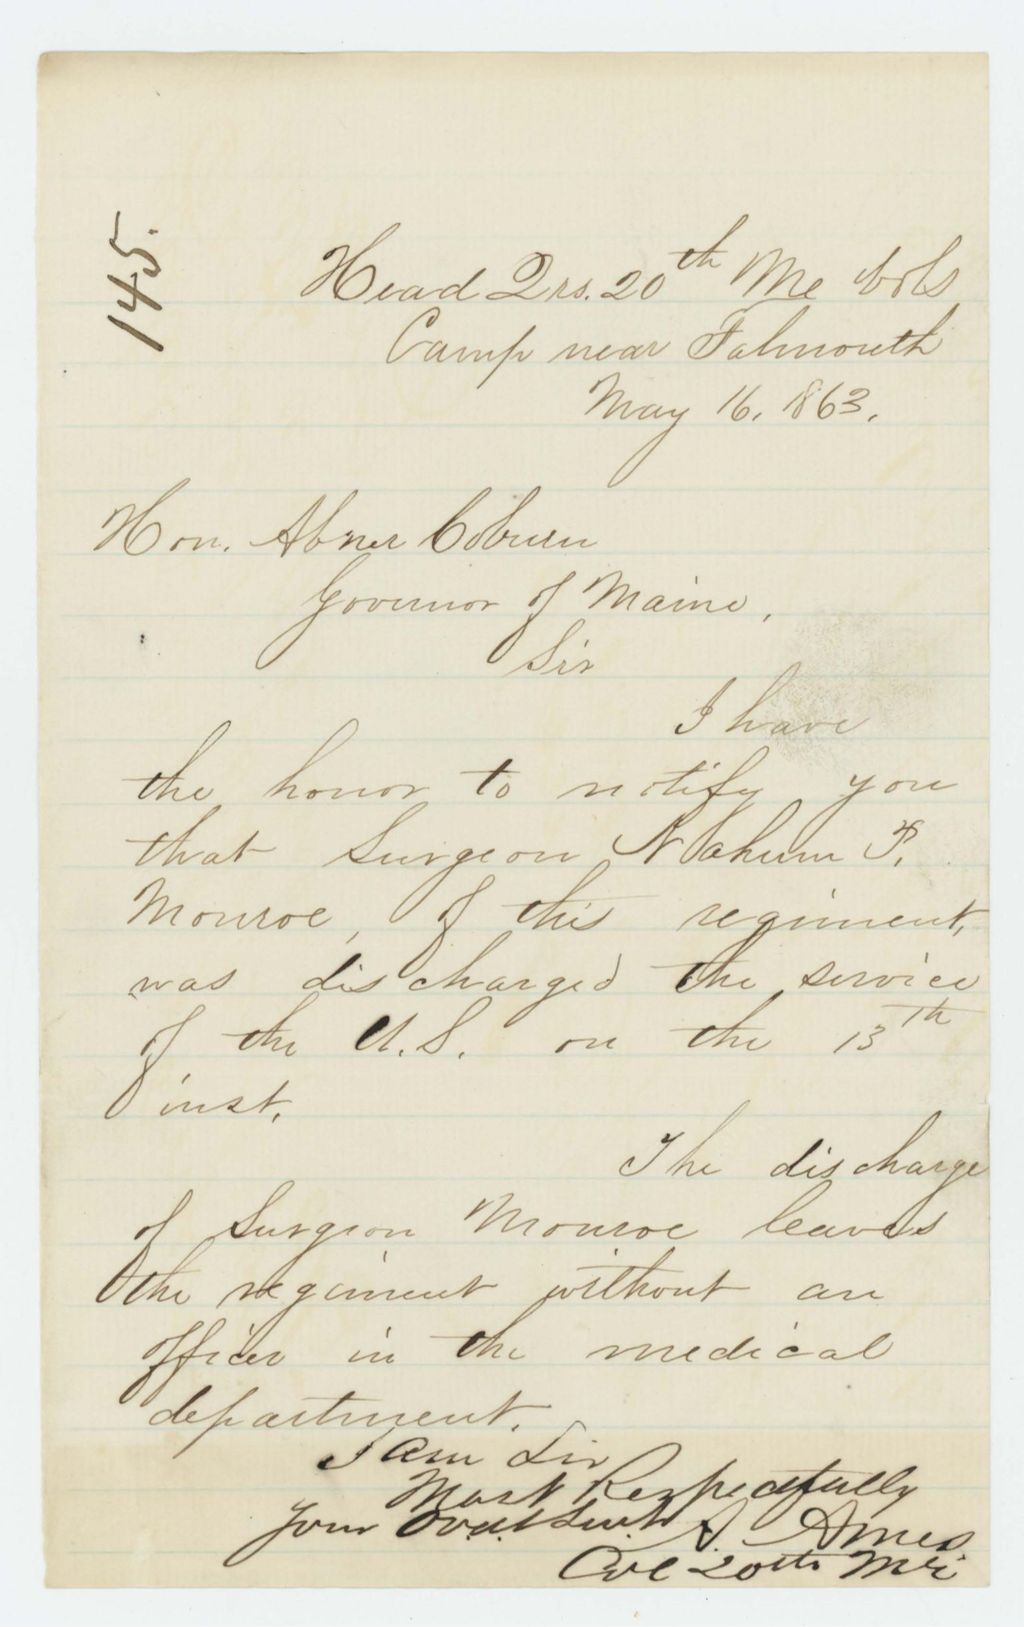 145.
Head Qrs. 20th Me Vols
Camp near Falmouth
May 16. 1863.
Hon. Abner Coburn
Governor of Maine,
Sir
I have
the honor to notify you
that Surgeon Nahum P.
Monroe, of this regiment,
was discharged the service
of the U.S. on the 13th
inst.
The discharge
of Surgeon Monroe leaves
the regiment without an
officer in the medical
department.
I am Sir
Most Respectfully
Your Obdt Servt A. Ames
Col 20th Me